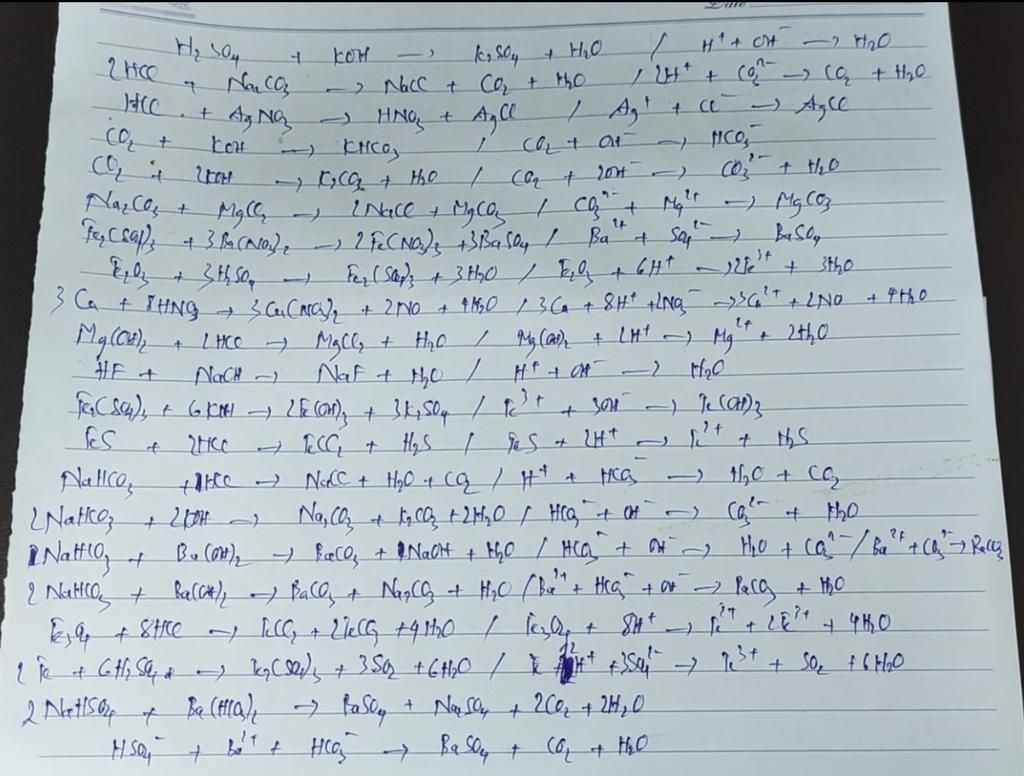 H₂SO₄ + KOH → K₂SO₄ + H₂O / H⁺ + OH⁻ → H₂O
2HCl + Na₂CO₃ → NaCl + CO₂ + H₂O / 2H⁺ + CO₃²⁻ → CO₂ + H₂O
HCl + AgNO₃ → HNO₃ + AgCl / Ag⁺ + Cl⁻ → AgCl
CO₂ + KOH → KHCO₃ / CO₂ + OH⁻ → HCO₃⁻
CO₂ + 2KOH → K₂CO₃ + H₂O / CO₂ + 2OH⁻ → CO₃²⁻ + H₂O
Na₂CO₃ + MgCl₂ → 2NaCl + MgCO₃ / CO₃²⁻ + Mg²⁺ → MgCO₃
Fe₂(SO₄)₃ + 3Ba(NO₃)₂ → 2Fe(NO₃)₃ + 3BaSO₄ / Ba²⁺ + SO₄²⁻ → BaSO₄
Fe₂O₃ + 3H₂SO₄ → Fe₂(SO₄)₃ + 3H₂O / Fe₂O₃ + 6H⁺ → 2Fe³⁺ + 3H₂O
3Cu + 8HNO₃ → 3Cu(NO₃)₂ + 2NO + 4H₂O / 3Cu + 8H⁺ + 2NO₃⁻ → 3Cu²⁺ + 2NO + 4H₂O
Mg(OH)₂ + 2HCl → MgCl₂ + H₂O / Mg(OH)₂ + 2H⁺ → Mg²⁺ + 2H₂O
HF + NaOH → NaF + H₂O / H⁺ + OH⁻ → H₂O
Fe₂(SO₄)₃ + 6KOH → 2Fe(OH)₃ + 3K₂SO₄ / Fe³⁺ + 3OH⁻ → Fe(OH)₃
FeS + 2HCl → FeCl₂ + H₂S / FeS + 2H⁺ → Fe²⁺ + H₂S
NaHCO₃ + HCl → NaCl + H₂O + CO₂ / H⁺ + HCO₃⁻ → H₂O + CO₂
2NaHCO₃ + 2KOH → Na₂CO₃ + K₂CO₃ + 2H₂O / HCO₃⁻ + OH⁻ → CO₃²⁻ + H₂O
NaHCO₃ + Ba(OH)₂ → BaCO₃ + NaOH + H₂O / HCO₃⁻ + OH⁻ → H₂O + CO₃²⁻ / Ba²⁺ + CO₃²⁻ → BaCO₃
2NaHCO₃ + Ba(OH)₂ → BaCO₃ + Na₂CO₃ + H₂O / Ba²⁺ + HCO₃⁻ + OH⁻ → BaCO₃ + H₂O
Fe₃O₄ + 8HCl → FeCl₂ + 2FeCl₃ + 4H₂O / Fe₃O₄ + 8H⁺ → Fe²⁺ + 2Fe³⁺ + 4H₂O
2Fe + 6H₂SO₄ → Fe₂(SO₄)₃ + 3SO₂ + 6H₂O / Fe + 12H⁺ + 3SO₄²⁻ → Fe³⁺ + SO₂ + 6H₂O
2NaHSO₄ + Ba(HCO₃)₂ → BaSO₄ + Na₂SO₄ + 2CO₂ + 2H₂O
HSO₄⁻ + Ba²⁺ + HCO₃⁻ → BaSO₄ + CO₂ + H₂O